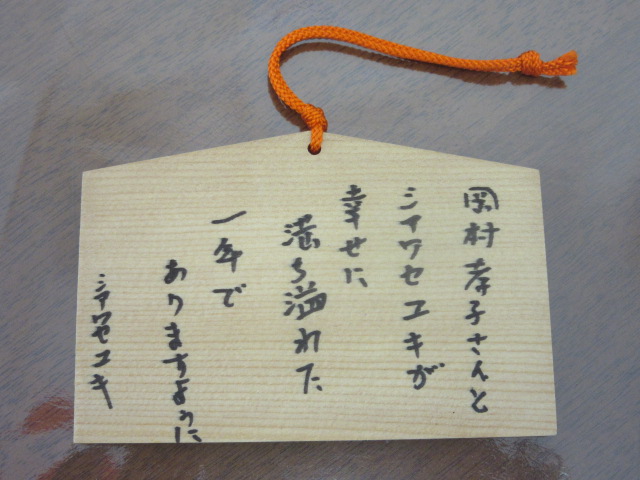 岡村孝子さんと
シアワセユキが
幸せに
満ち溢れた
一年で
ありますように
シアワセユキ